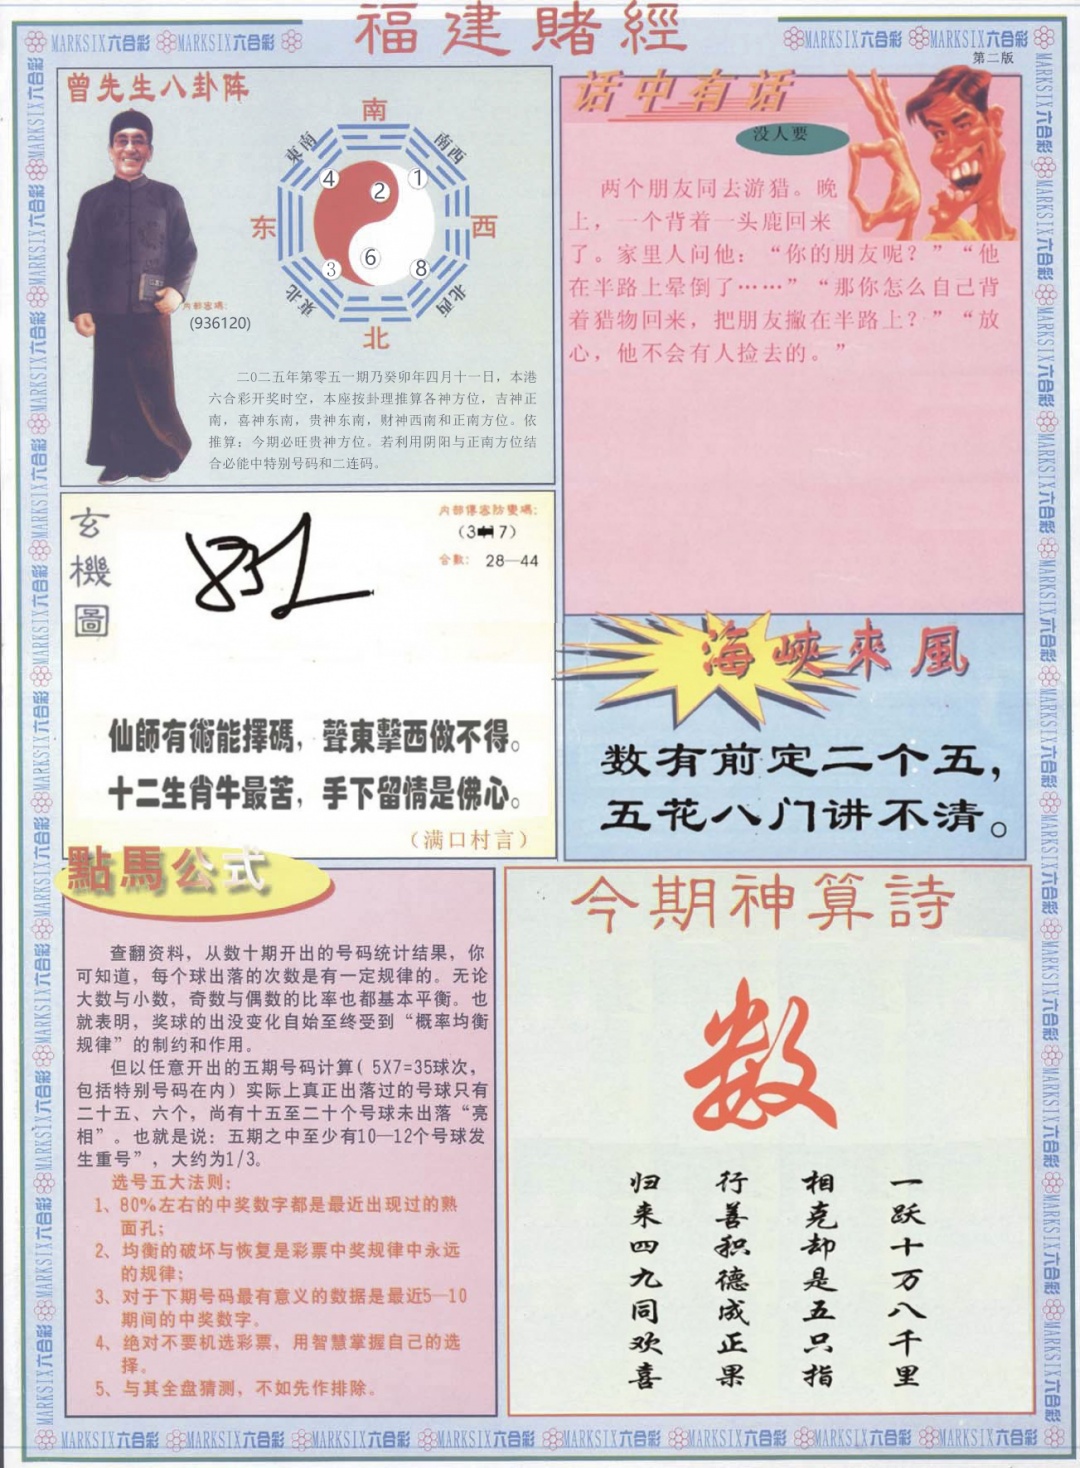 福建賭經
MARKSIX六合彩 MARKSIX六合彩
MARKSIX六合彩 MARKSIX六合彩
第二版
曾先生八卦阵
南
東南
南西
东
西
東北
北西
北
4
2
1
6
3
8
内部密碼:
(936120)
二0二五年第零五一期乃癸卯年四月十一日，本港
六合彩开奖时空，本座按卦理推算各神方位，吉神正
南，喜神东南，贵神东南，财神西南和正南方位。依
推算：今期必旺贵神方位。若利用阴阳与正南方位结
合必能中特别号码和二连码。
话中有话
没人要
两个朋友同去游猎。晚
上，一个背着一头鹿回来
了。家里人问他：“你的朋友呢？”“他
在半路上晕倒了……”“那你怎么自己背
着猎物回来，把朋友撇在半路上？”“放
心，他不会有人捡去的。”
玄機圖
内部傳密防變碼:
合數: 28—44
仙師有術能擇碼，聲東擊西做不得。
十二生肖牛最苦，手下留情是佛心。
（满口村言）
海峽來風
数有前定二个五，
五花八门讲不清。
點馬公式
查翻资料，从数十期开出的号码统计结果，你
可知道，每个球出落的次数是有一定规律的。无论
大数与小数，奇数与偶数的比率也都基本平衡。也
就表明，奖球的出没变化自始至终受到“概率均衡
规律”的制约和作用。
但以任意开出的五期号码计算( 5X7=35球次，
包括特别号码在内）实际上真正出落过的号球只有
二十五、六个，尚有十五至二十个号球未出落“亮
相”。也就是说：五期之中至少有10—12个号球发
生重号”，大约为1/3。
选号五大法则:
1、80%左右的中奖数字都是最近出现过的熟
面孔;
2、均衡的破坏与恢复是彩票中奖规律中永远
的规律;
3、对于下期号码最有意义的数据是最近5—10
期间的中奖数字。
4、绝对不要机选彩票，用智慧掌握自己的选
择。
5、与其全盘猜测，不如先作排除。
今期神算詩
数
一跃十万八千里
相克却是五只指
行善积德成正果
归来四九同欢喜
MARKSIX六合彩 MARKSIX六合彩 MARKSIX六合彩 MARKSIX六合彩 MARKSIX六合彩 MARKSIX六合彩 MARKSIX六合彩 MARKSIX六合彩